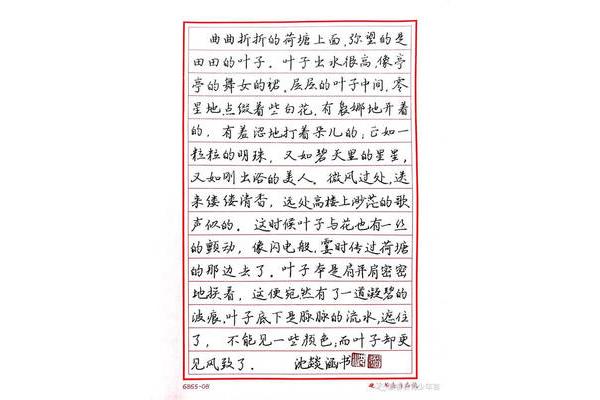 曲曲折折的荷塘上面,弥望的是
田田的叶子。叶子出水很高,像亭
亭的舞女的裙。层层的叶子中间,零
星地点缀着些白花,有袅娜地开着
的,有羞涩地打着朵儿的;正如一
粒粒的明珠,又如碧天里的星星,
又如刚出浴的美人。微风过处,送
来缕缕清香,远处高楼上渺茫的歌
声似的。这时候叶子与花也有一丝
的颤动,像闪电般,霎时传过荷塘
的那边去了。叶子本是肩并肩密密
地挨着,这便宛然有了一道凝碧的
波痕。叶子底下是脉脉的流水,遮住
了,不能见一些颜色;而叶子却更
见风致了。 沈燚涵书
6865-08